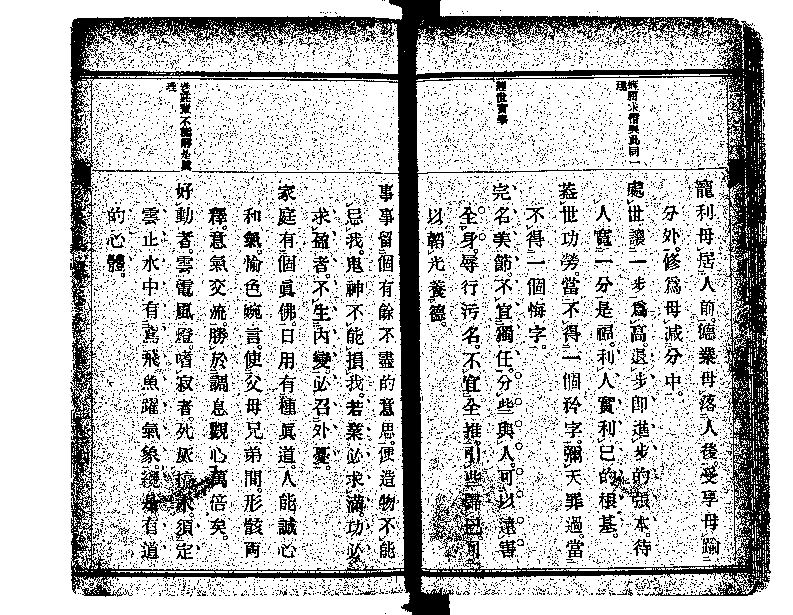 寵利毋居人前德業毋落人後受享毋踰
分外修爲毋減分中。
處世讓一步爲高退步即進步的張本待
人寬一分是福利人實利己的根基。
蓋世功勞當不得一個矜字彌天罪過當
不得一個悔字。
完名美節不宜獨任分些與人可以遠害
全身辱行污名不宜全推引些歸己可
以韜光養德。
經世實學
事事留個有餘不盡的意思便造物不能
忌我鬼神不能損我若業必求滿功必
求盈者不生內變必召外憂。
家庭有個眞佛日用有種眞道人能誠心
和氣愉色婉言使父母兄弟間形骸兩
釋意氣交流勝於調息觀心萬倍矣。
好動者雲電風燈嗜寂者死灰槁木須定
雲止水中有鳶飛魚躍氣象纔是有道
的心體。